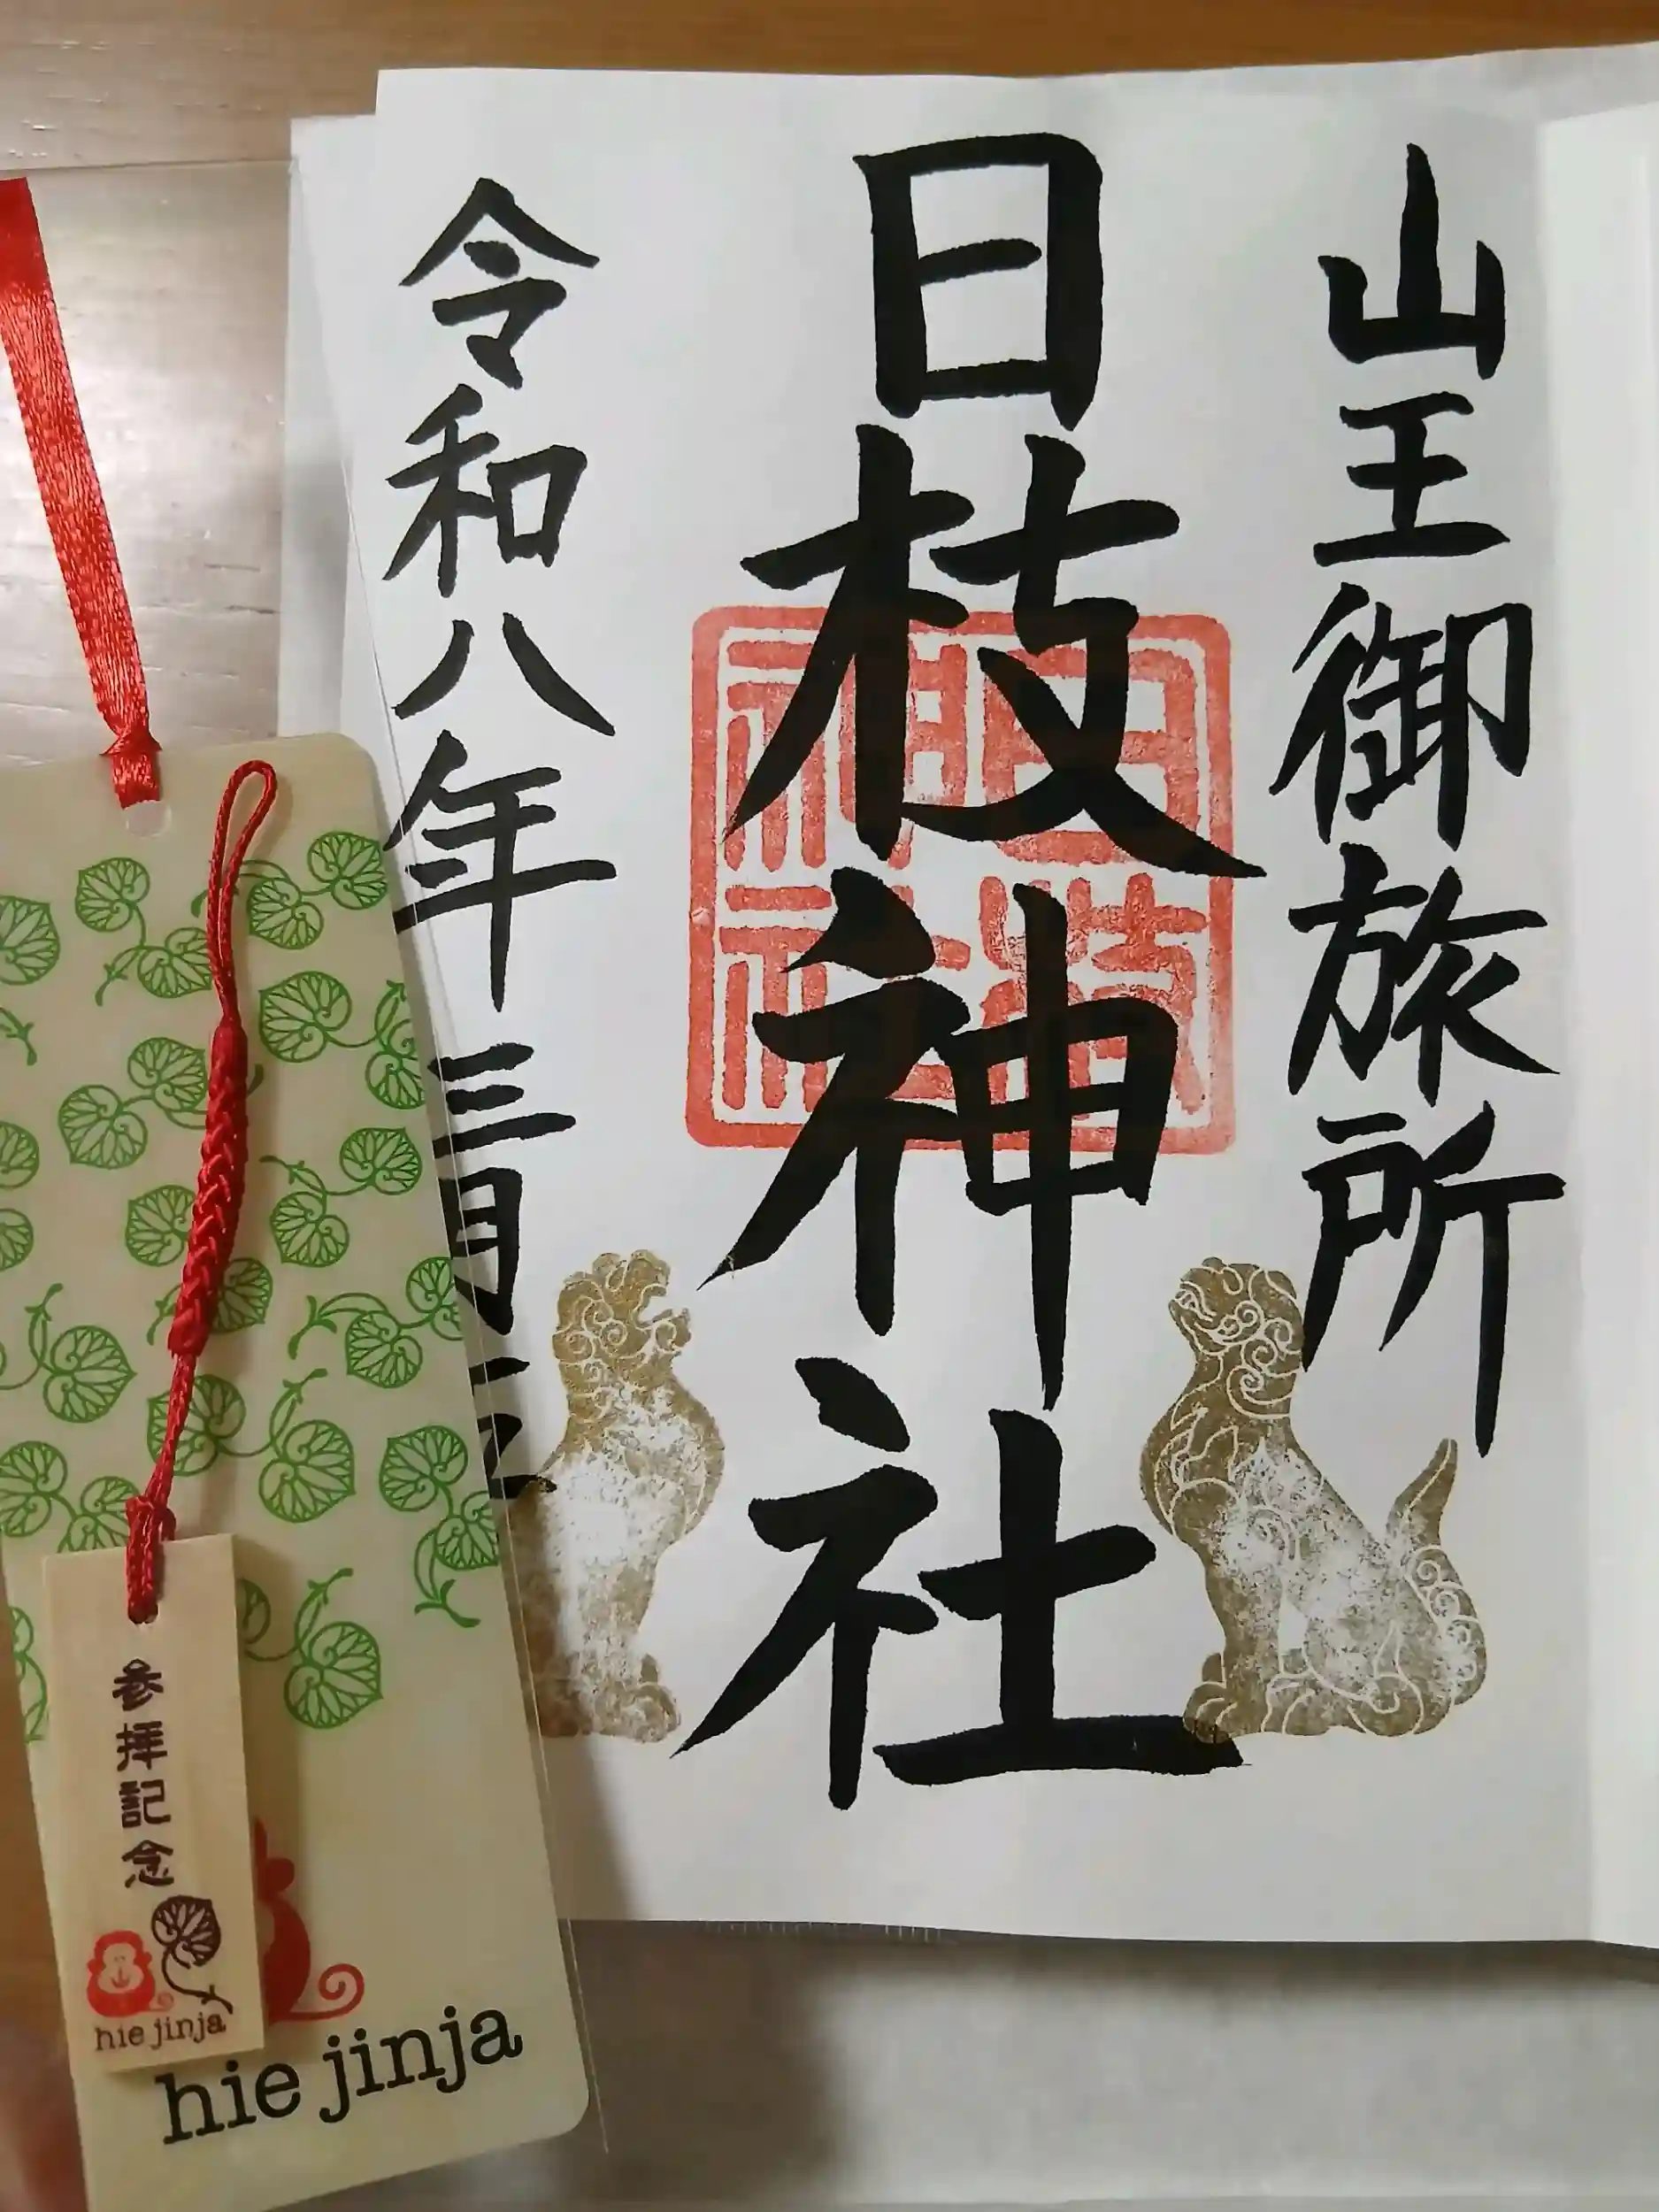 山王御旅所
日枝神社
令和八年三月
日枝神社
参拝記念
hie jinja
hie jinja